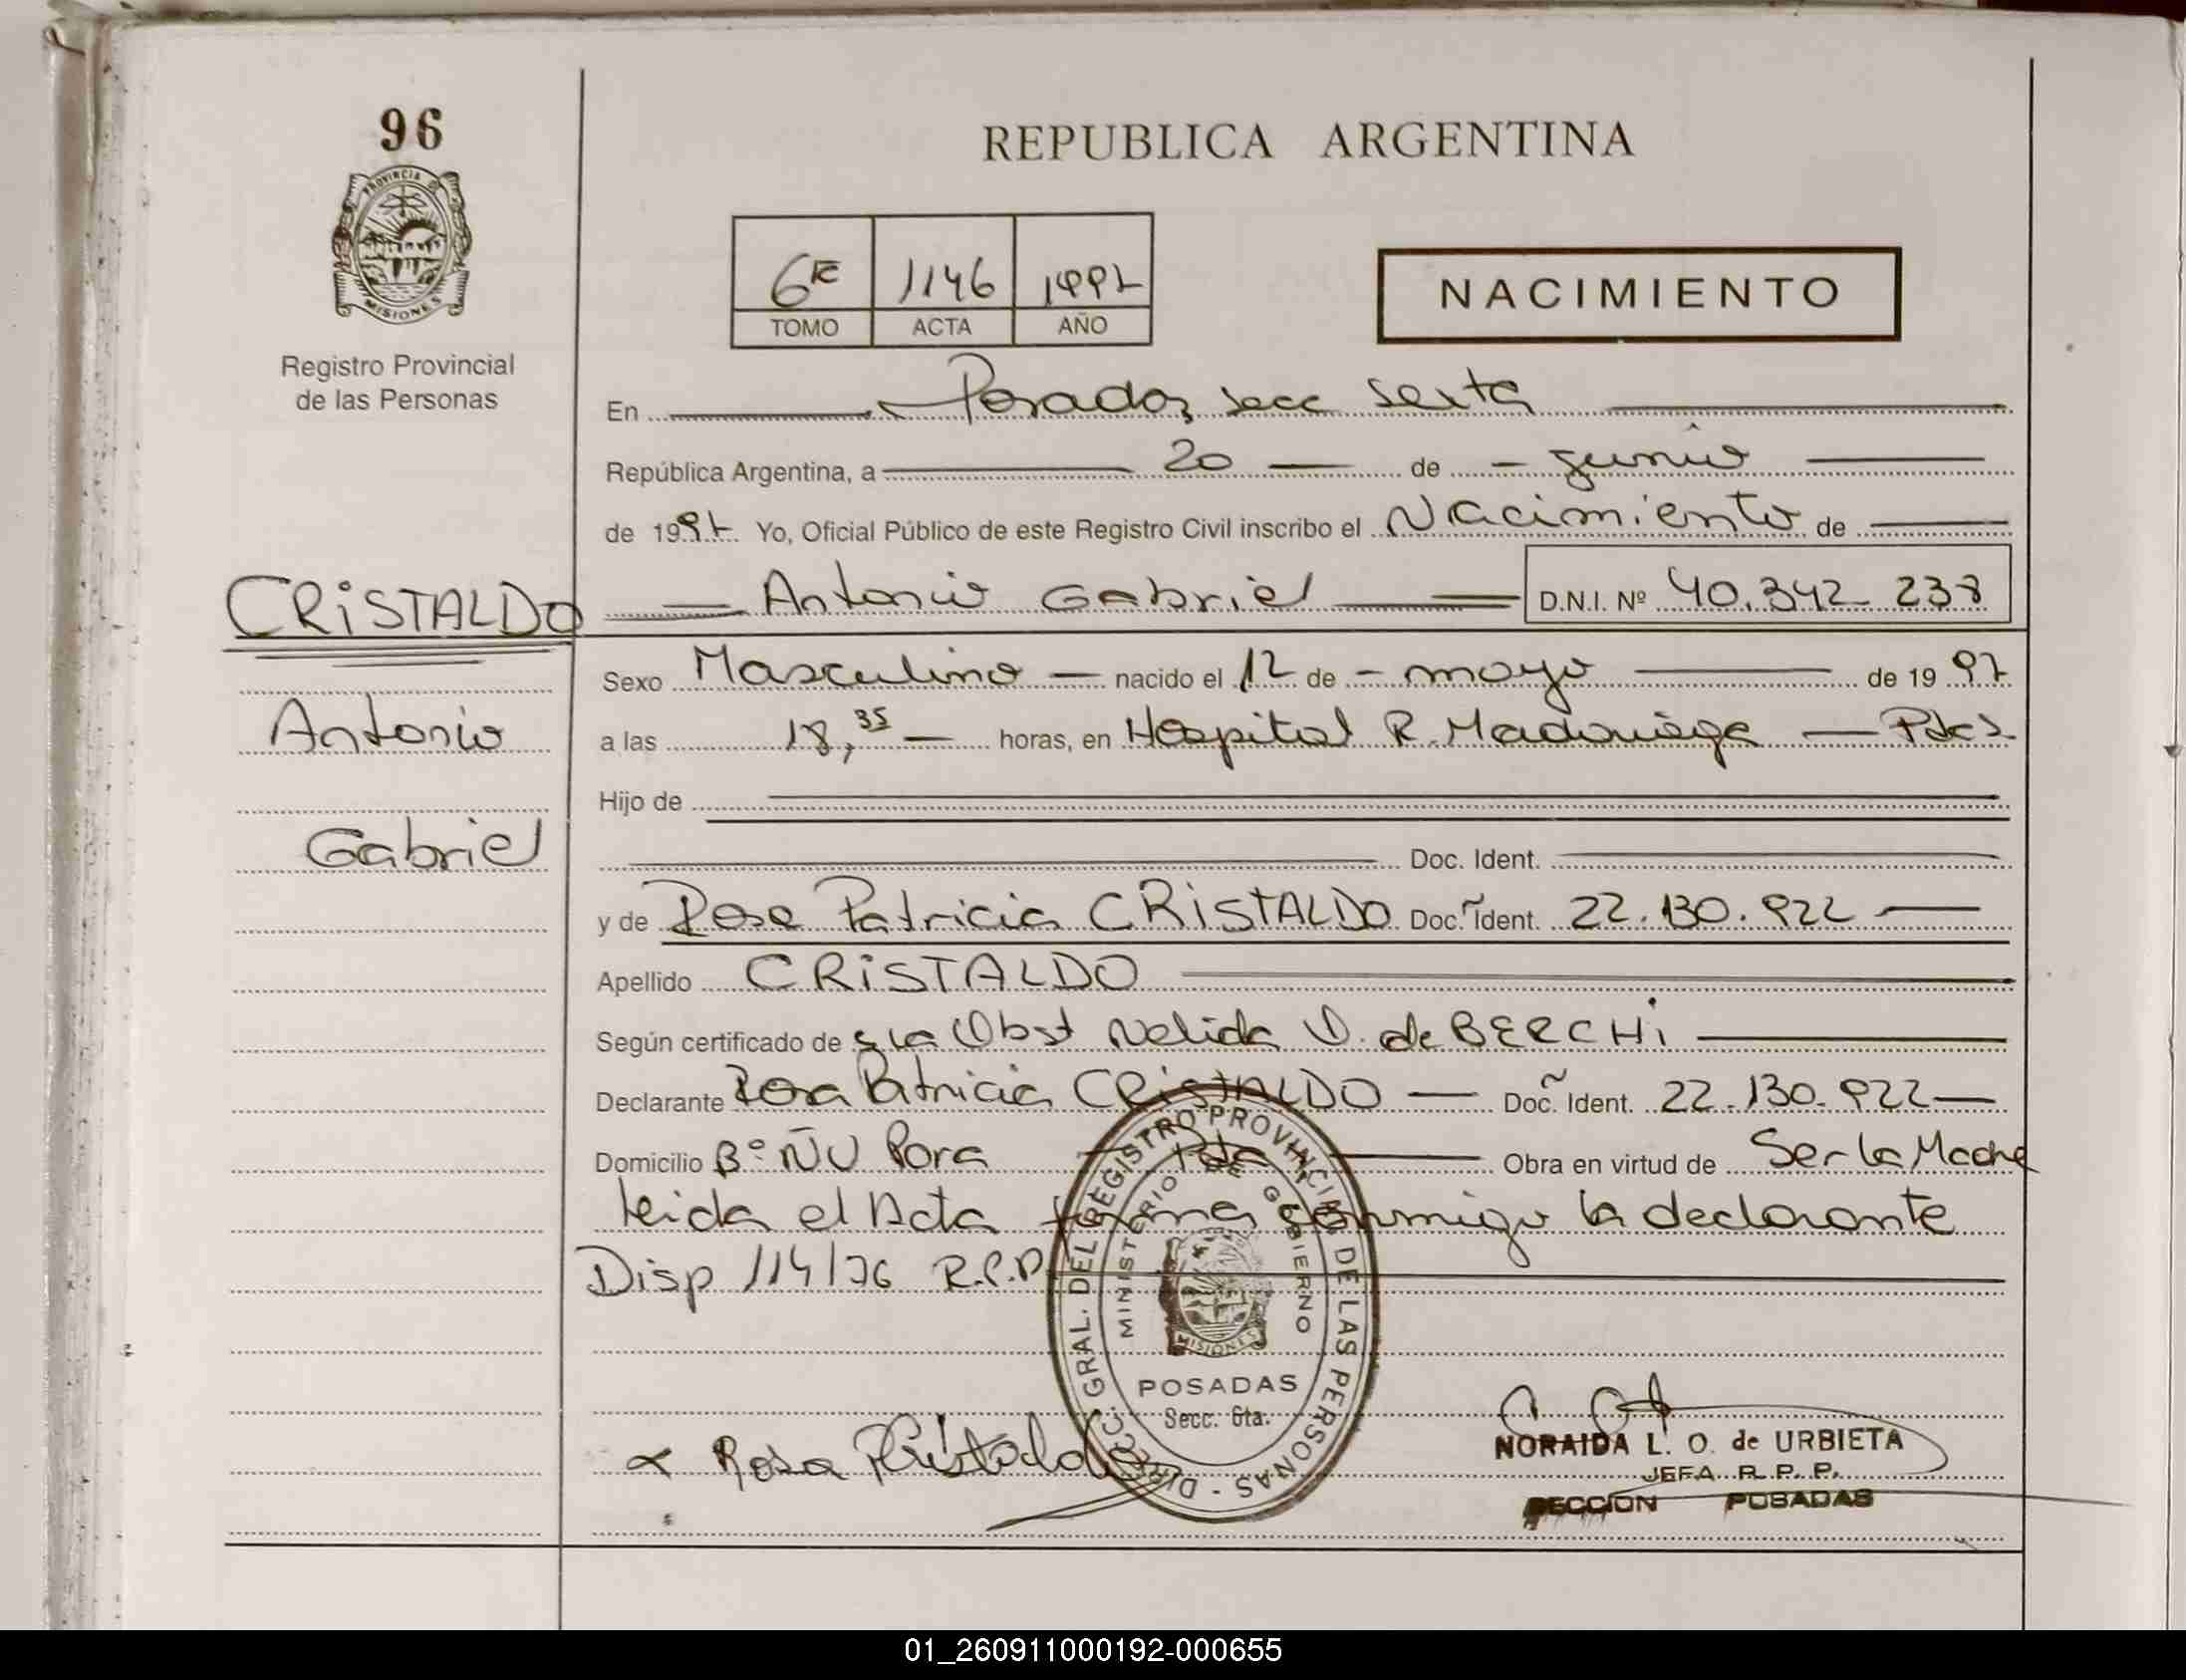 96
PROVINCIA DE
MISIONES
Registro Provincial
de las Personas
REPUBLICA ARGENTINA
6E 1146 1997
TOMO ACTA AÑO
NACIMIENTO
En Posadas, secc sexta
República Argentina, a 20 de junio
de 1997 Yo, Oficial Público de este Registro Civil inscribo el Nacimiento de
CRiSTALDO
Antonio Gabriel D.N.I. Nº 40.342 238
Antonio
Gabriel
Sexo Masculino nacido el 12 de mayo de 1997
a las 18,35 horas, en Hospital R. Madariaga Pdas
Hijo de
Doc. Ident.
y de Rosa Patricia CRiSTALDO Doc. Ident. 22.130.922
Apellido CRiSTALDO
Según certificado de la Obst Nelida D. de BERCHi
Declarante Rosa Patricia CRiSTALDO Doc. Ident. 22.130.922
Domicilio Bº ÑU Pora Pdas Obra en virtud de Ser la Madre
leida el Acta firma conmigo la declarante
Disp 114/76 R.P.P
DIRECC. GRAL. DEL REGISTRO PROVINCIAL DE LAS PERSONAS
MINISTERIO DE GOBIERNO
MISIONES
POSADAS
Secc. 6ta.
Rosa P Cristaldo
NORAIDA L. O. de URBIETA
JEFA R. P. P.
SECCION POSADAS
01_260911000192-000655